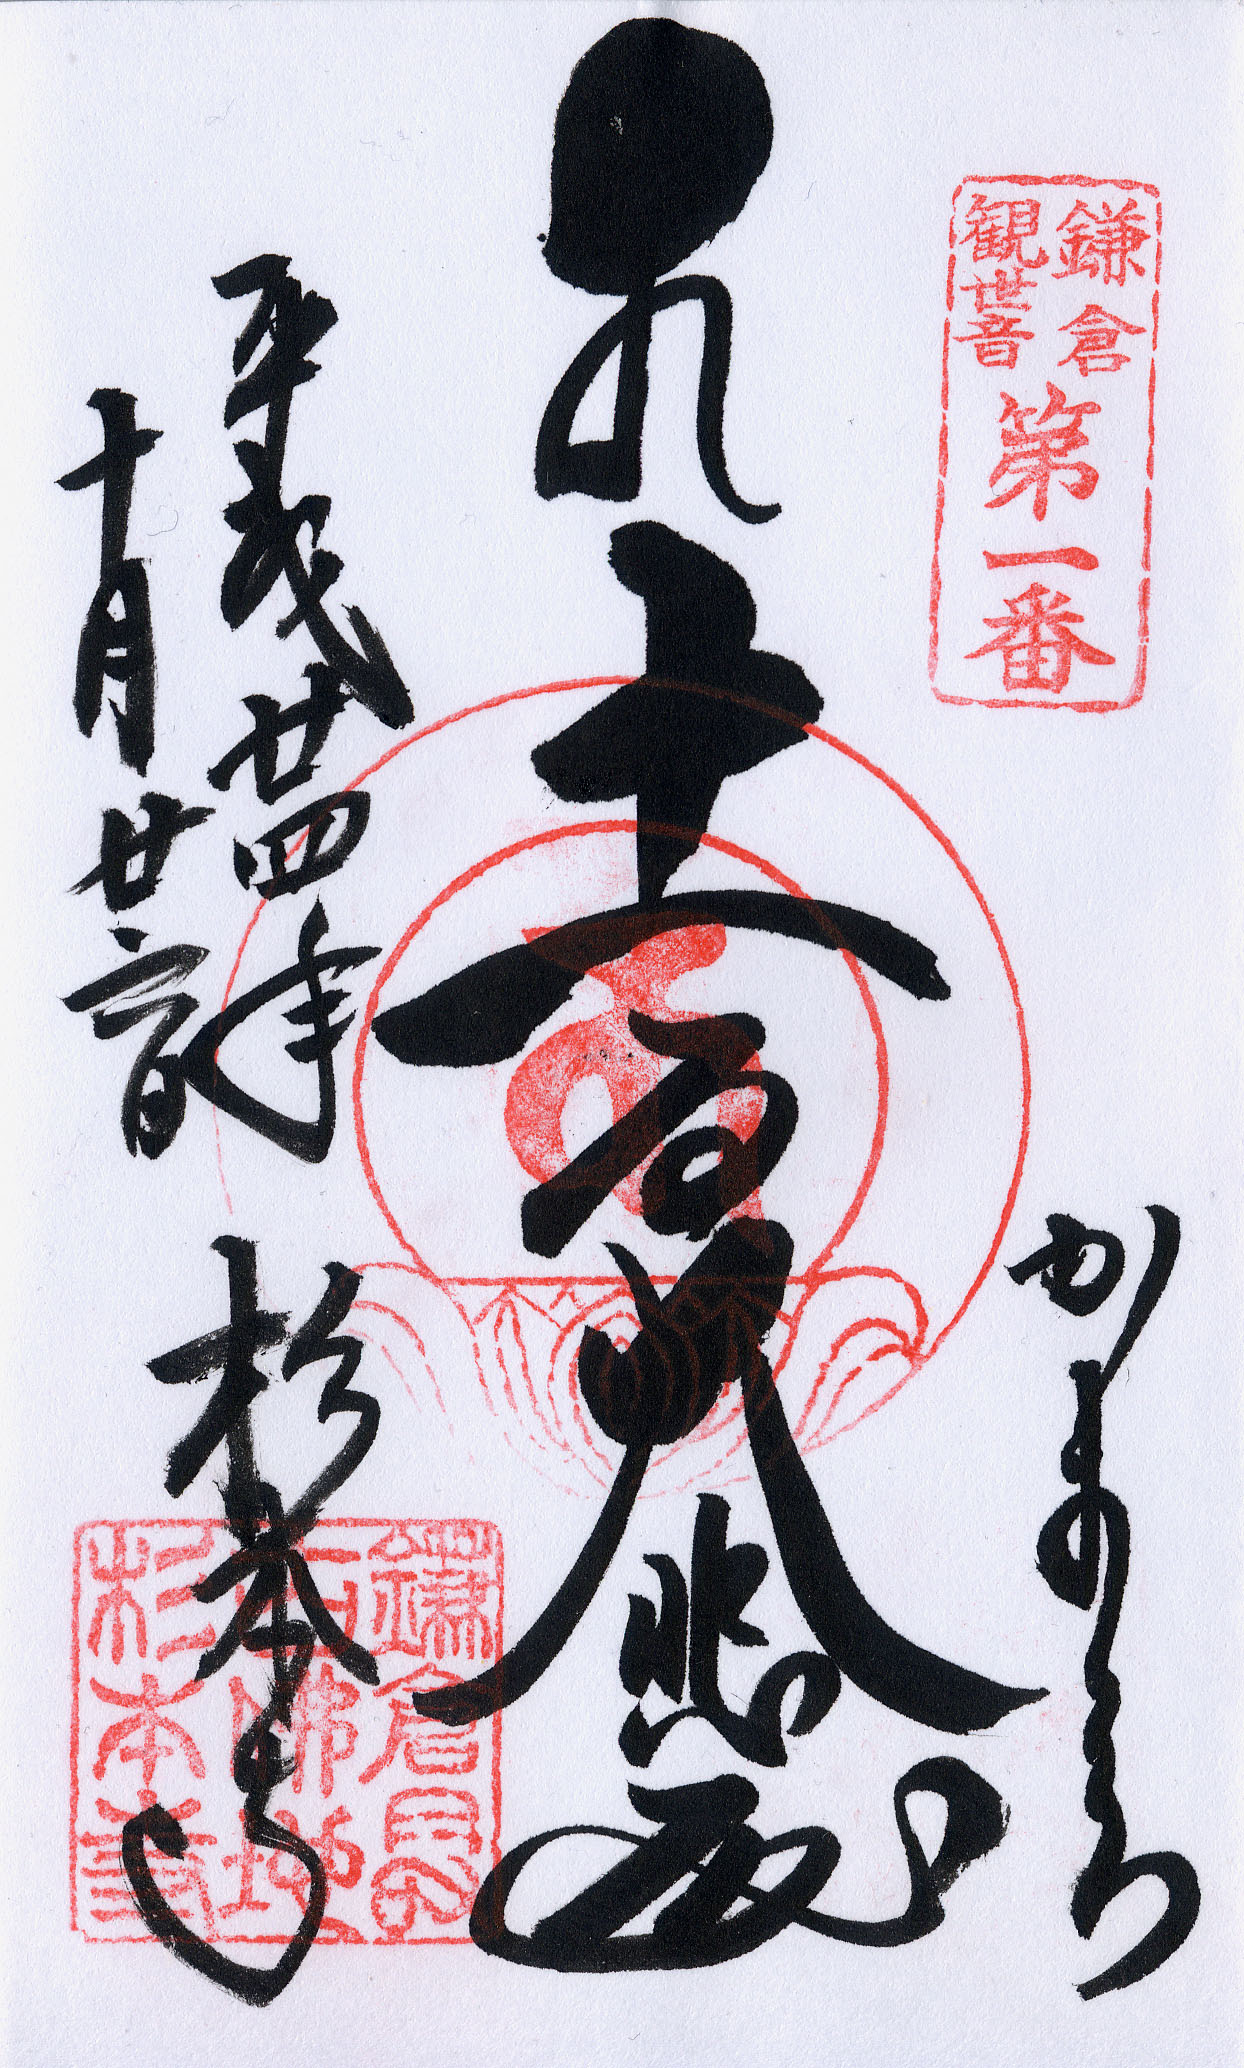 鎌倉
観世音
第一番
かまくら
十一面大悲殿
平成廿四年
十月廿
杉本寺
鎌倉最
古佛地
杉本寺